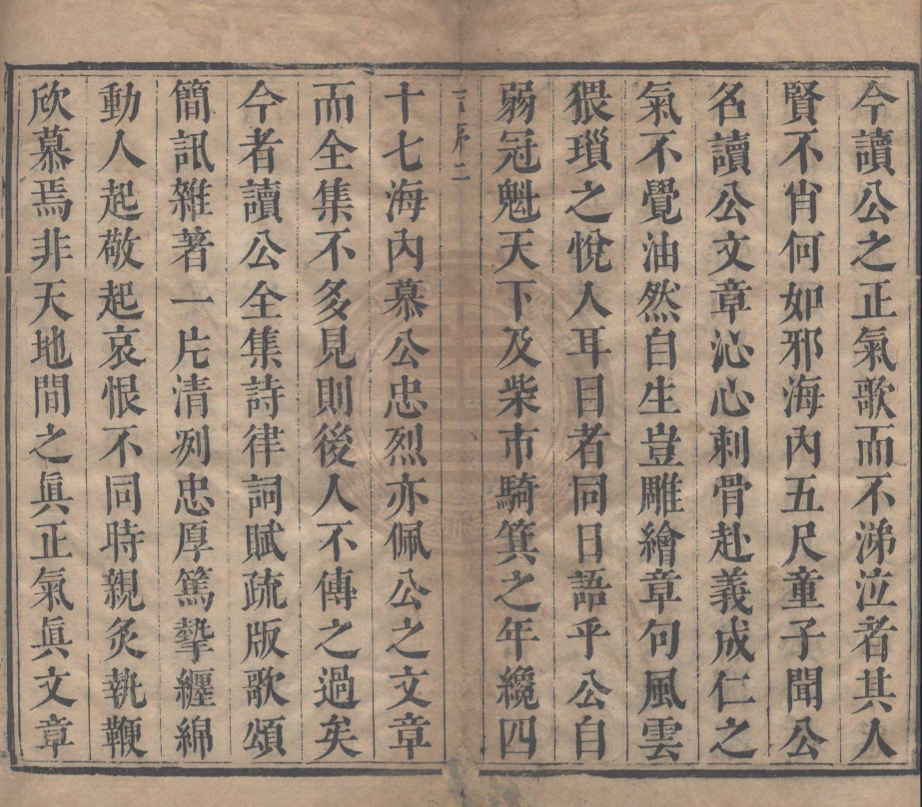 今讀公之正氣歌而不涕泣者其人
賢不肖何如邪海內五尺童子聞公
名讀公文章沁心刺骨赴義成仁之
氣不覺油然自生豈雕繪章句風雲
猥瑣之悅人耳目者同日語乎公自
弱冠魁天下及柴市騎箕之年纔四
序二
十七海內慕公忠烈亦佩公之文章
而全集不多見則後人不傳之過矣
今者讀公全集詩律詞賦疏版歌頌
簡訊雜著一片清剡忠厚篤摯纏綿
動人起敬起哀恨不同時親炙執鞭
欣慕焉非天地間之眞正氣眞文章